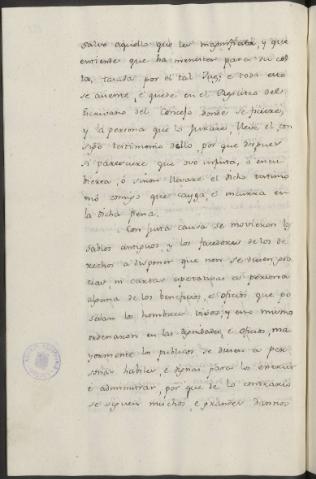 salvo aquello que les magnifiesta, y que
entiende que ha menester para su cos
ta, tasada por el tal Juez: e todo esto
se asiente, e quede en el Registro del
Escrivano del Concejo donde se ficiere,
y la persona que lo jurare, lleve el con
sigo testimonio dello, por que despues
si pareciere que ovo infinta, ó encu
bierta, ó sinon llevare el dicho testimo
nio consigo que cayga, e incurra en
la dicha pena.
Con justa causa se movieron los
sabios antiguos y los facedores de los de
rechos a disponer que non se diesen gra
cias ni cartas espetativas a persona
alguna de los beneficios, e oficios que po
seian los hombres vivos; y eso mismo
ordenaron en las dignidades, e oficios, ma
yormente los publicos se diesen a per
sonas habiles, e dignas para los exercer
e administrar, por que de lo contrario
se siguen muchos, e grandes daños